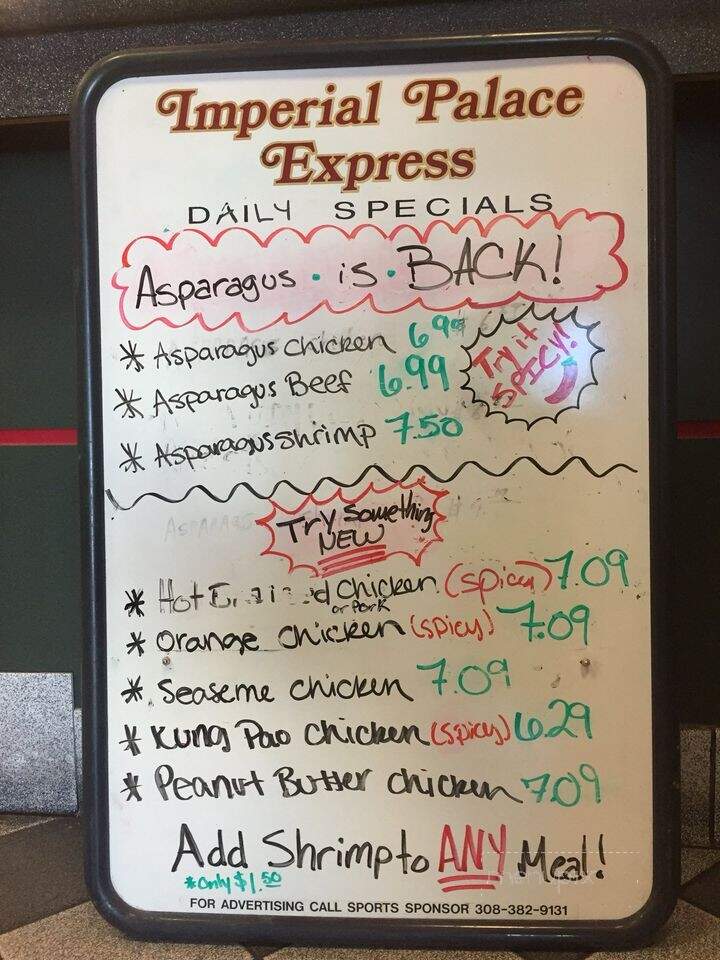 Imperial Palace
Express
DAILY SPECIALS
Asparagus · is · BACK!
* Asparagus Chicken 6.99
* Asparagus Beef 6.99
Try it
SPICY!
* Asparagus shrimp 7.50
Try Something
NEW
* Hot chicken (spicy) 7.09
or Pork
* Orange chicken (spicy) 7.09
* Seaseme chicken 7.09
* Kung Pao chicken (spicy) 6.29
* Peanut Butter chicken 7.09
Add Shrimp to ANY Meal!
* Only $1.50
FOR ADVERTISING CALL SPORTS SPONSOR 308-382-9131